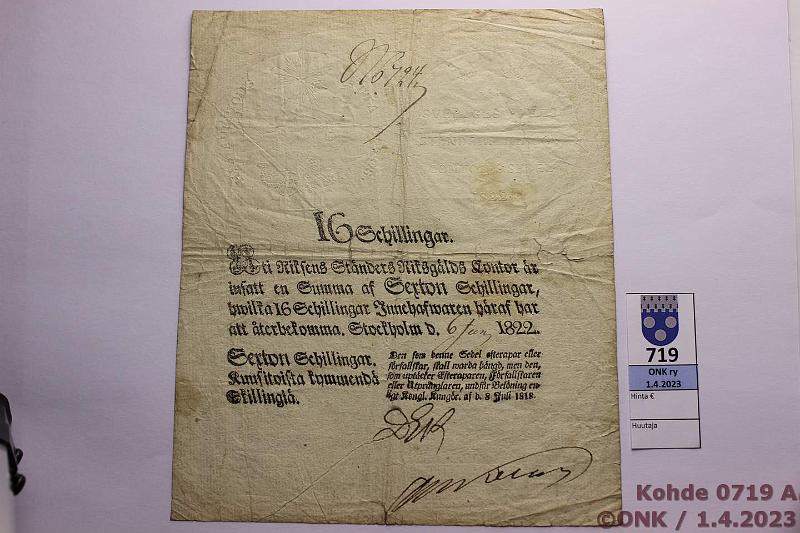 16 Schillingar.
Uti Riksens Ständers Riksgälds Contor är
insatt en Summa af Sexton Schillingar,
hwilka 16 Schillingar Innehafwaren häraf har
att återbekomma. Stockholm d. 6 Juny 1822.
Sexton Schillingar.
Kuusitoista kymmendä
Skillingiä.
Den som denne Sedel efterapar eller
förfalskar, skall warda hängd, men den,
som uptäcker Efteraparen, Förfalskaren
eller Utprånglaren, undfår Belöning en-
ligt Kongl. Kungör. af d. 8 Juli 1818.
719
ONK ry
1.4.2023
Hinta €
Huutaja
Kohde 0719 A.
©ONK / 1.4.2023